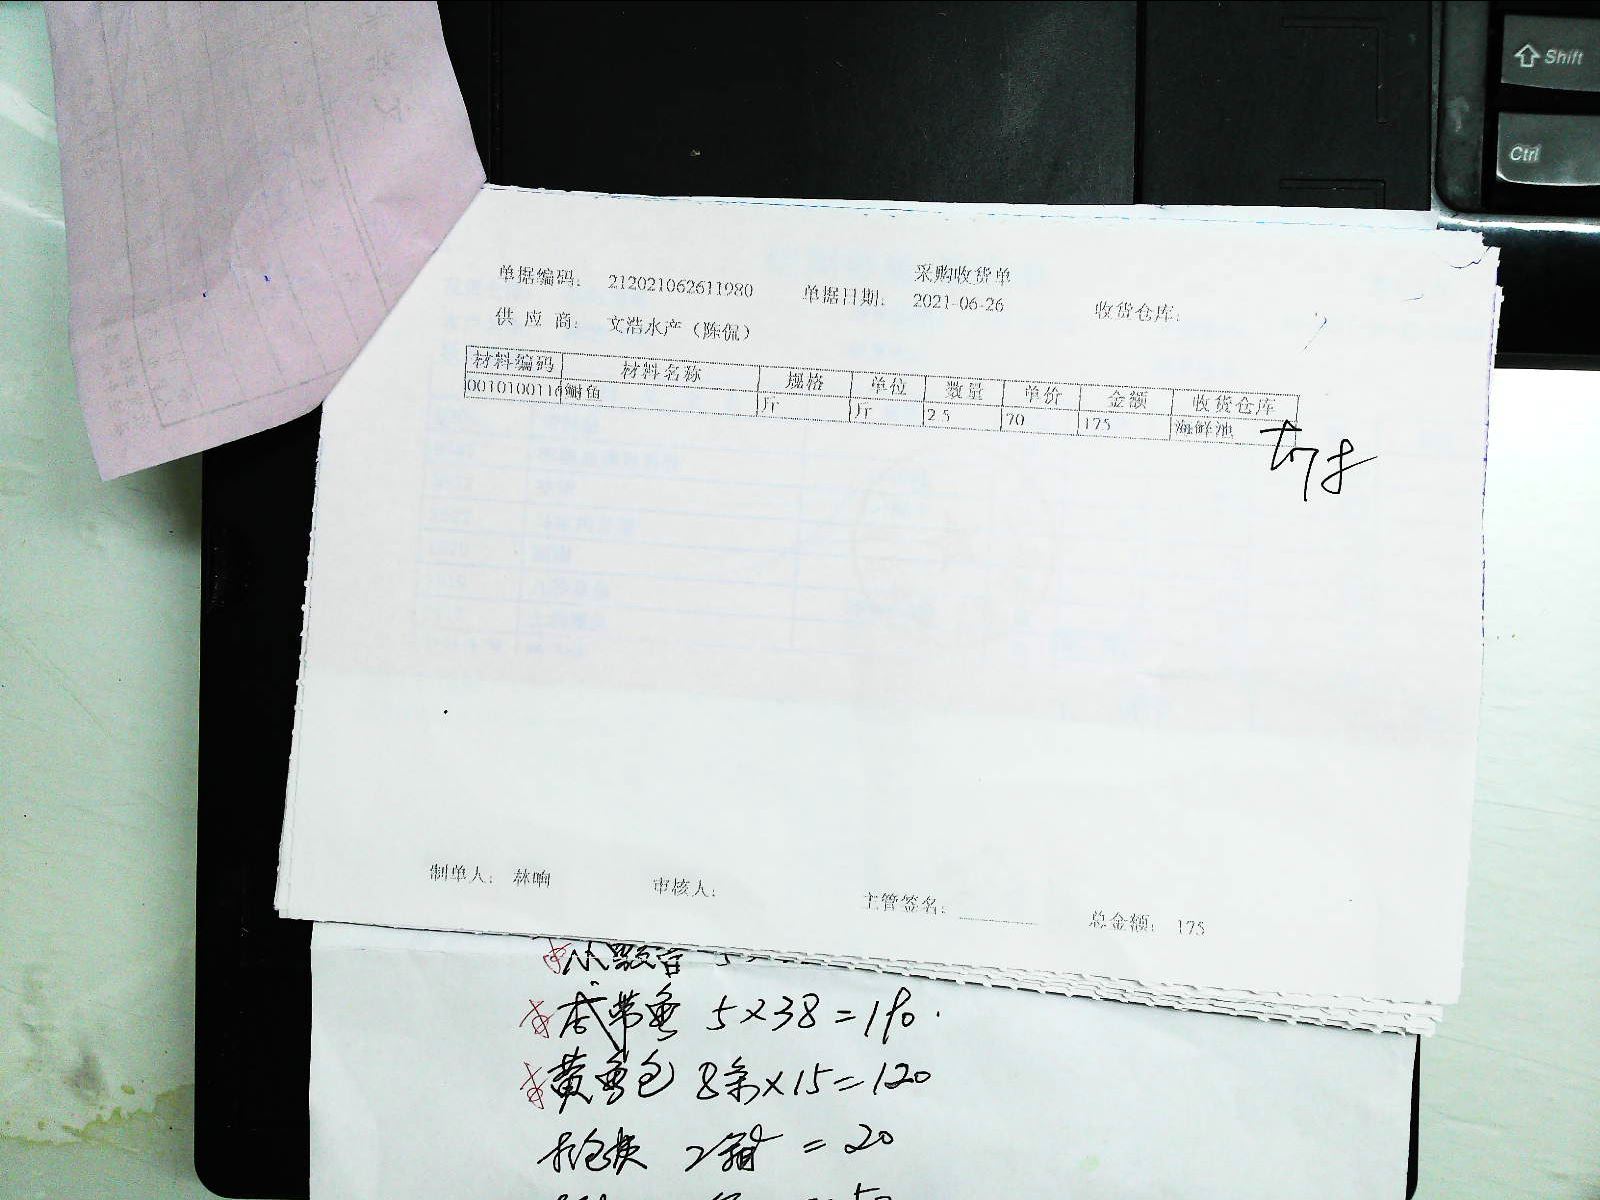 Shift
Ctrl
采购收货单
单据编码: 212021062611980 单据日期: 2021-06-26 收货仓库:
供 应 商: 文浩水产（陈侃）
材料编码 材料名称 规格 单位 数量 单价 金额 收货仓库
0010100116 鮰鱼 斤 斤 2.5 70 175 海鲜池
制单人: 林响 审核人: 主管签名: 总金额: 175
带鱼 5×38=190.
黄鱼 8条×15=120
2箱 =20